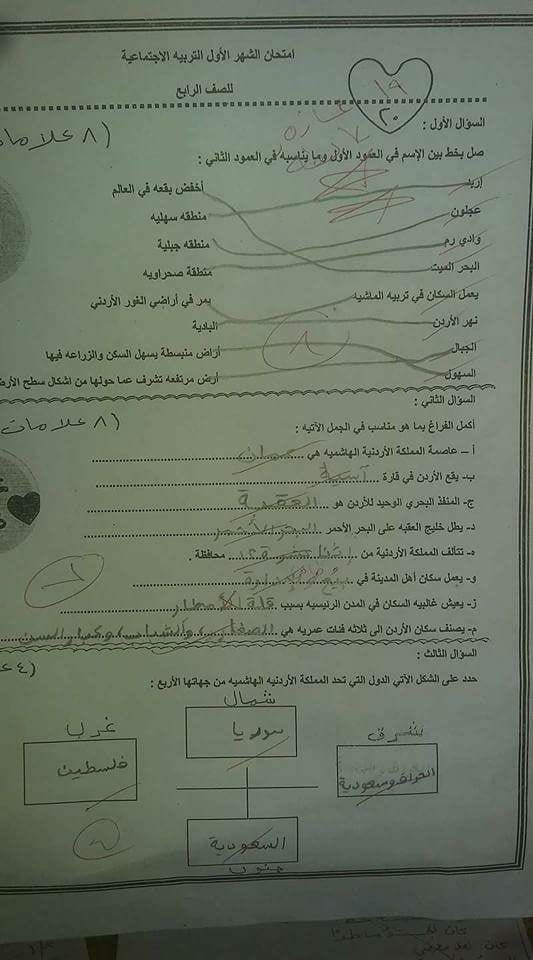 امتحان الشهر الأول التربيه الاجتماعية
للصف الرابع
١٩
٢٠
السؤال الأول :
(٨ علامات
صل بخط بين الإسم في العمود الأول وما يناسبه في العمود الثاني :
إربد أخفض بقعه في العالم
عجلون منطقه سهليه
وادي رم منطقه جبلية
البحر الميت منطقة صحراويه
يعمل السكان في تربيه الماشيه يمر في أراضي الغور الأردني
نهر الأردن البادية
الجبال أراض منبسطة يسهل السكن والزراعه فيها
السهول أرض مرتفعه تشرف عما حولها من اشكال سطح الأرض
٨
السؤال الثاني :
(٨ علامات
أكمل الفراغ بما هو مناسب في الجمل الآتيه :
أ – عاصمة المملكة الأردنية الهاشميه هي عمان
ب- يقع الأردن في قارة آسية
ج- المنفذ البحري الوحيد للأردن هو العقبة
د- يطل خليج العقبه على البحر الأحمر البحر الأحمر
ه- تتألف المملكة الأردنية من محافظة .
و- يعمل سكان أهل المدينة في
ز- يعيش غالبيه السكان في المدن الرئيسيه بسبب قلة الأمطار
م- يصنف سكان الأردن الى ثلاثه فئات عمريه هي الصغار والشباب وكبار السن
السؤال الثالث :
(٤
حدد على الشكل الآتي الدول التي تحد المملكة الأردنيه الهاشميه من جهاتها الأربع :
شمال
سوريا
شرق
العراق وسعودية
غرب
فلسطين
السعودية
جنوب